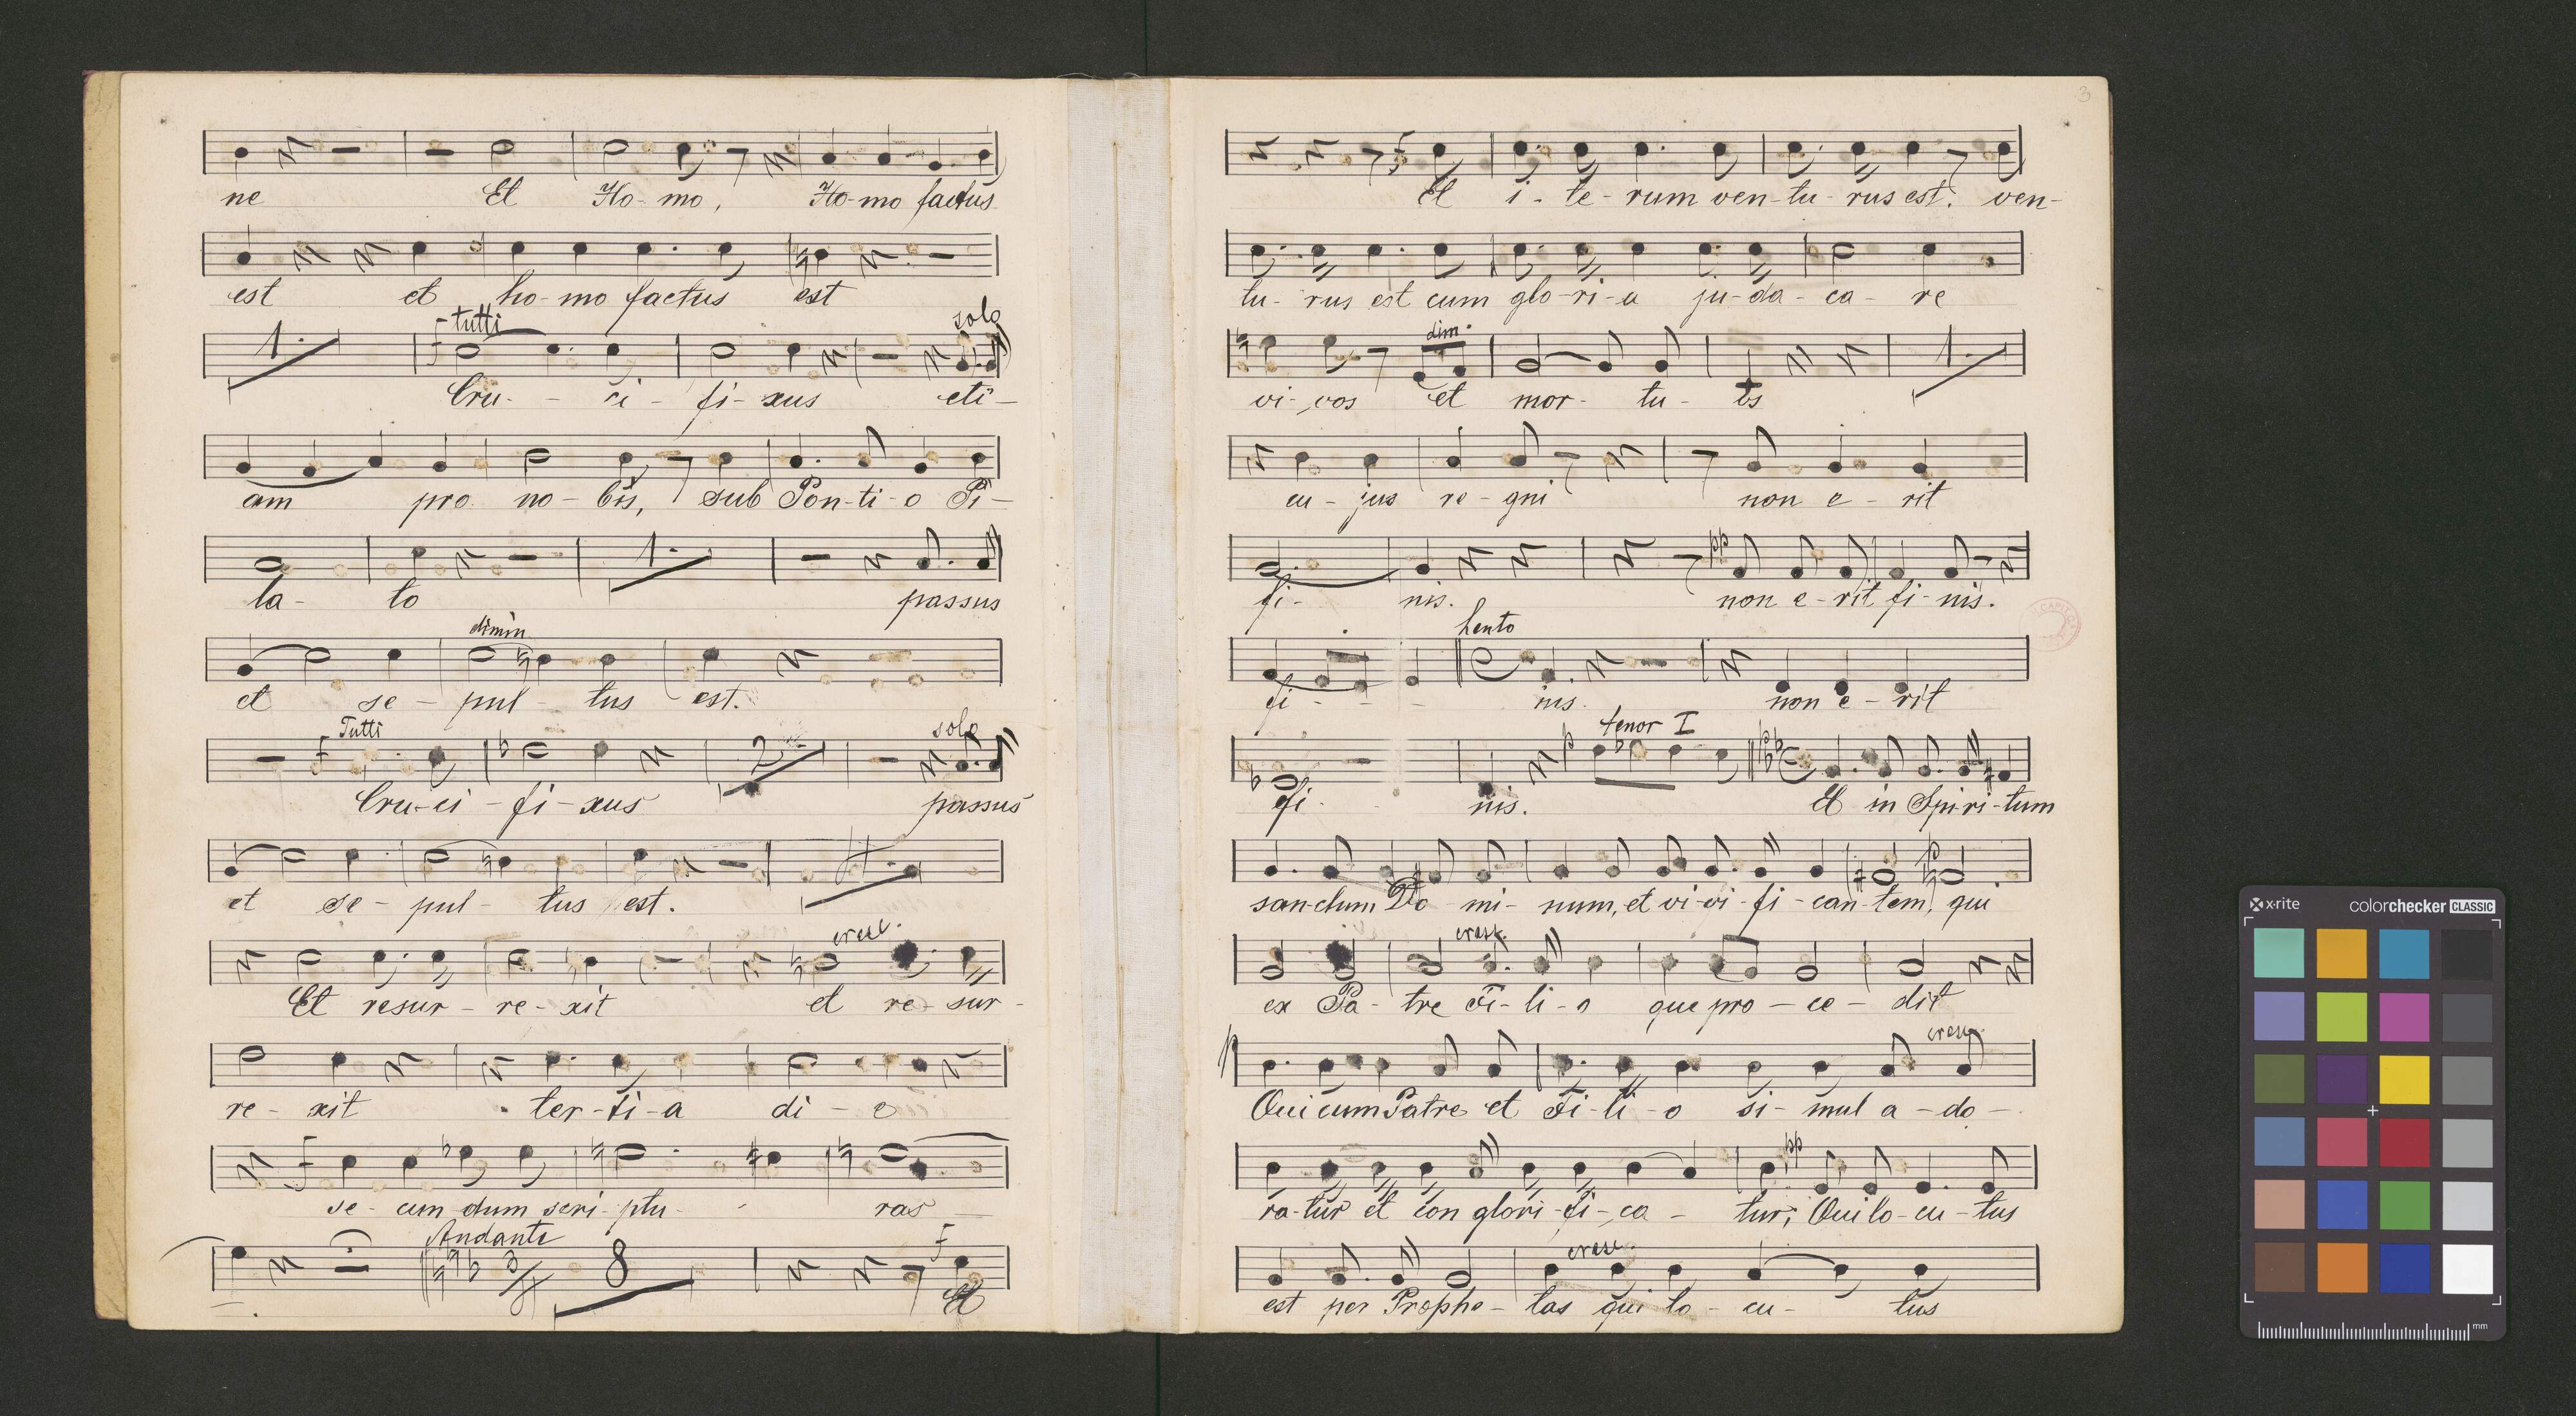 ne Et Ho-mo, Ho-mo factus
est et ho-mo factus est
1. tutti solo
f
Cru-ci-fi-xus eti-
am pro no-bis, sub Pon-ti-o Pi-
1.
la-to passus
dimin
et se-pul-tus est.
Tutti solo
f 2
Cru-ci-fi-xus passus
et se-pul-tus est.
cresc.
Et resur-re-xit et re-sur-
re-xit ter-ti-a di-e
f
se-cun dum scri-ptu-ras
Andante f
3/4 8
Et
3
f
Et i-te-rum ven-tu-rus est, ven-
tu-rus est cum glo-ri-a ju-da-ca-re
dim. 1.
vi-vos et mor-tu-os
cu-jus re-gni non e-rit
pp
fi-nis. non e-rit fi-nis.
Lento
fi-nis. non e-rit
tenor I
p
fi-nis. Et in Spiri-tum
p
sanctum Do-mi-num, et vi-vi-fi-can-tem, qui
cresc.
ex Pa-tre Fi-li-o que pro-ce-dit
p cresc.
Qui cum Patre et Fi-li-o si-mul a-do-
pp
ra-tur et con glori-fi-ca-tur; Qui lo-cu-tus
cresc.
est per Prophe-tas qui lo-cu-tus
x-rite colorchecker CLASSIC
mm